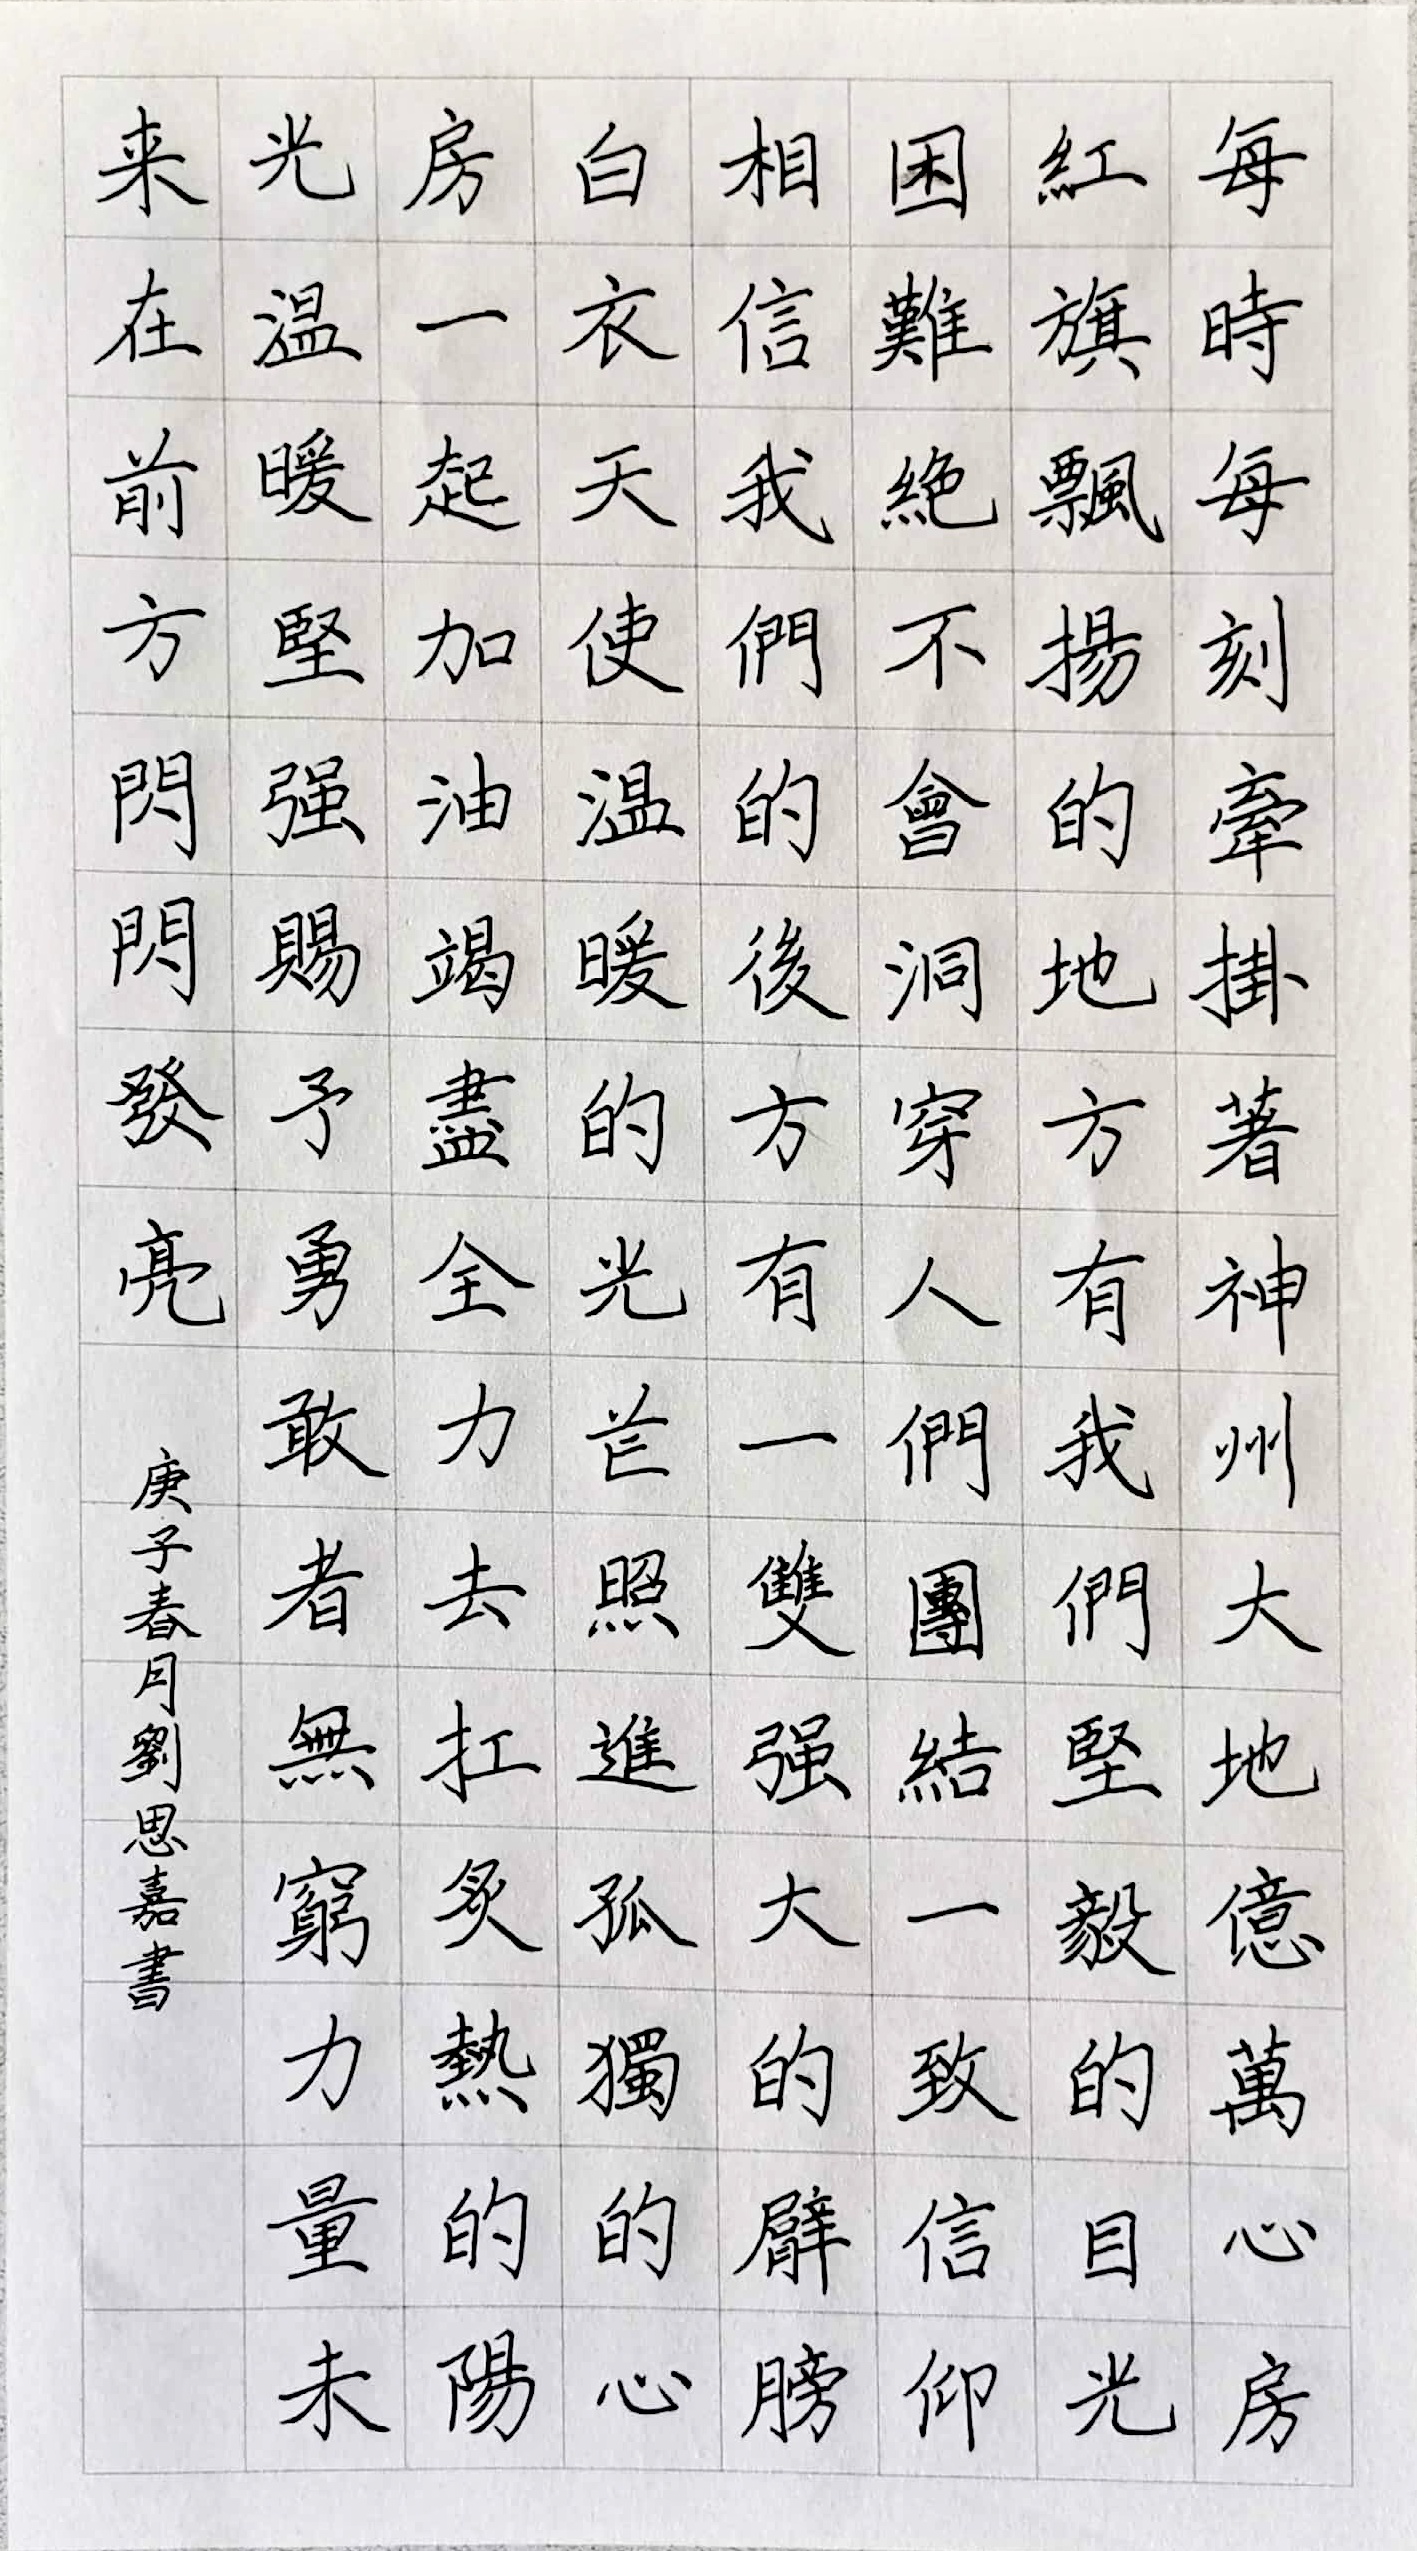 每時每刻牽掛著神州大地億萬心房
紅旗飄揚的地方有我們堅毅的目光
困難絶不會洞穿人們團結一致信仰
相信我們的後方有一雙强大的臂膀
白衣天使温暖的光芒照進孤獨的心
房一起加油竭盡全力去扛炙熱的陽
光温暖堅强賜予勇敢者無窮力量未
来在前方閃閃發亮
庚子春月劉思嘉書